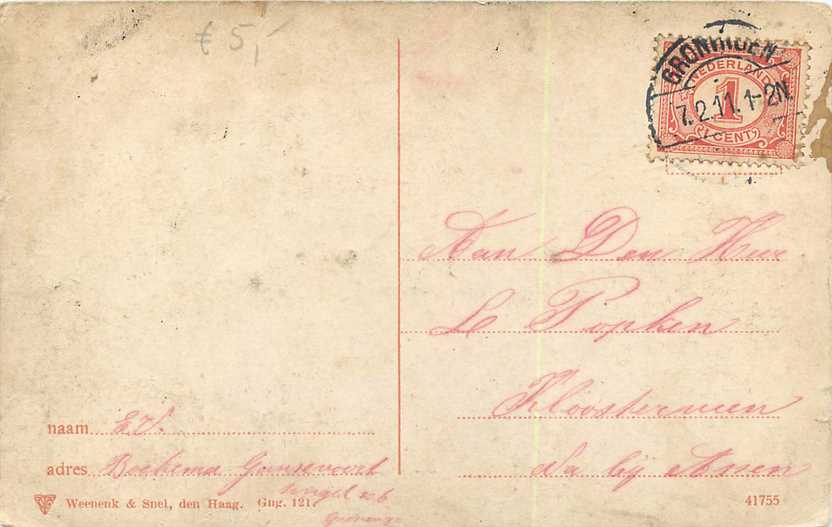 € 5,-
GRONINGEN
NEDERLAND
1
CENT
7.2.11.1-2N
Aan Den Heer
Popken
Kloosterveen
bij Assen
naam E.V.
adres Boekema
singel
Weenenk & Snel, den Haag. Gng. 121
41755